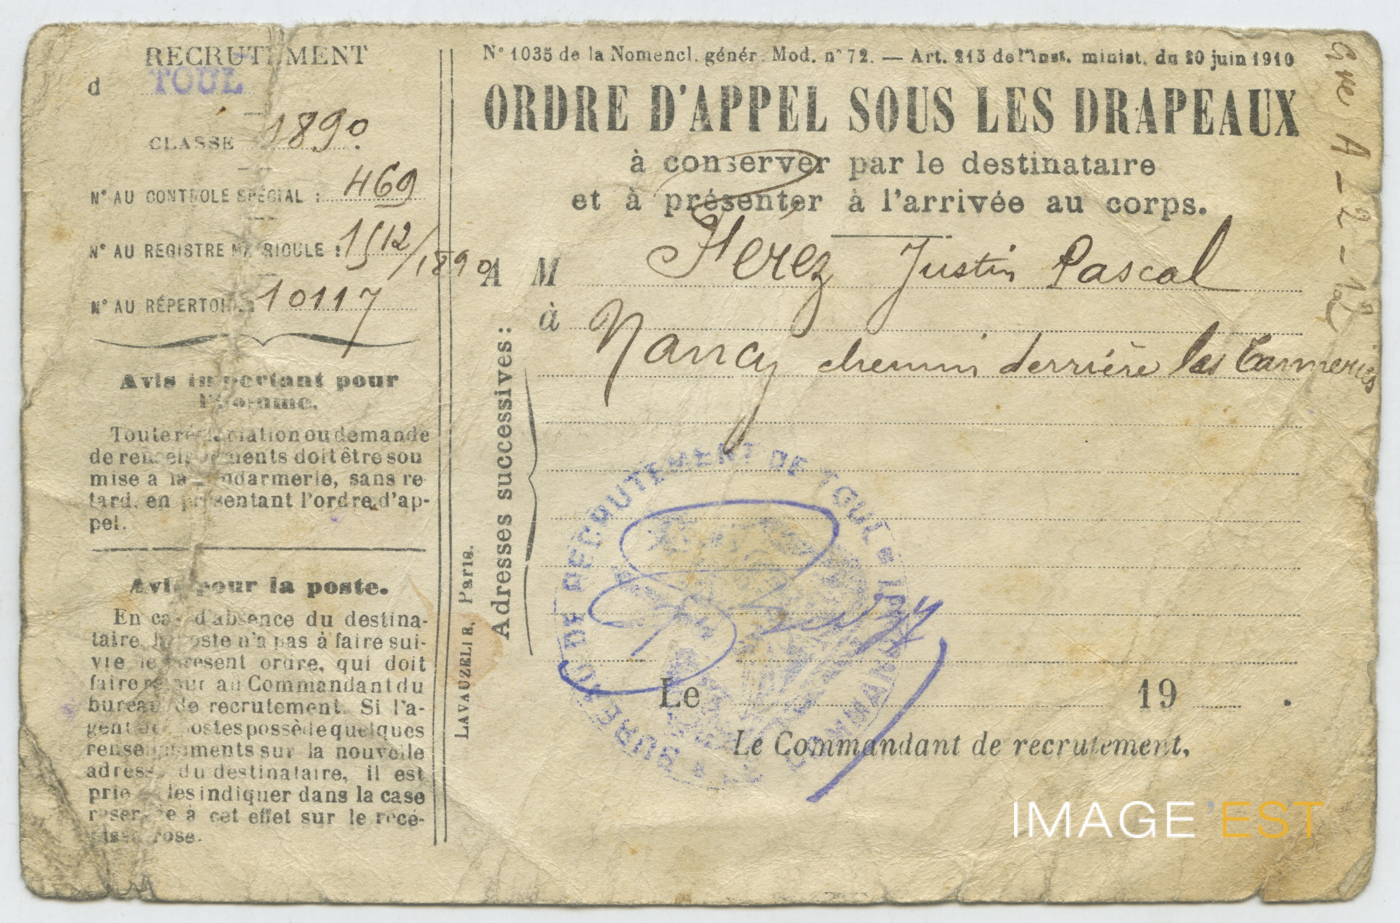 RECRUTEMENT
d TOUL
CLASSE 1890.
N° AU CONTROLE SPÉCIAL : 469
N° AU REGISTRE MATRICULE : 1512/1890
N° AU RÉPERTOIRE 10117
Avis important pour
l'homme.
Toute réclamation ou demande
de renseignements doit être sou
mise à la gendarmerie, sans re
tard, en présentant l'ordre d'ap-
pel.
Avis pour la poste.
En cas d'absence du destina-
taire, la poste n'a pas à faire sui-
vre le présent ordre, qui doit
faire retour au Commandant du
bureau de recrutement. Si l'a-
gent des postes possède quelques
renseignements sur la nouvelle
adresse du destinataire, il est
prié de les indiquer dans la case
réservée à cet effet sur le récé-
pissé rose.
LAVAUZELLE, Paris.
N° 1035 de la Nomencl. génér. Mod. n° 72. — Art. 215 de l'Inst. minist. du 20 juin 1910
ORDRE D'APPEL SOUS LES DRAPEAUX
à conserver par le destinataire
et à présenter à l'arrivée au corps.
A M Férez Justin Pascal
à Nancy chemin derrière les Tanneries
Adresses successives :
BUREAU DE RECRUTEMENT DE TOUL
COMMANDANT
Le 19 .
Le Commandant de recrutement,
IMAGE'EST